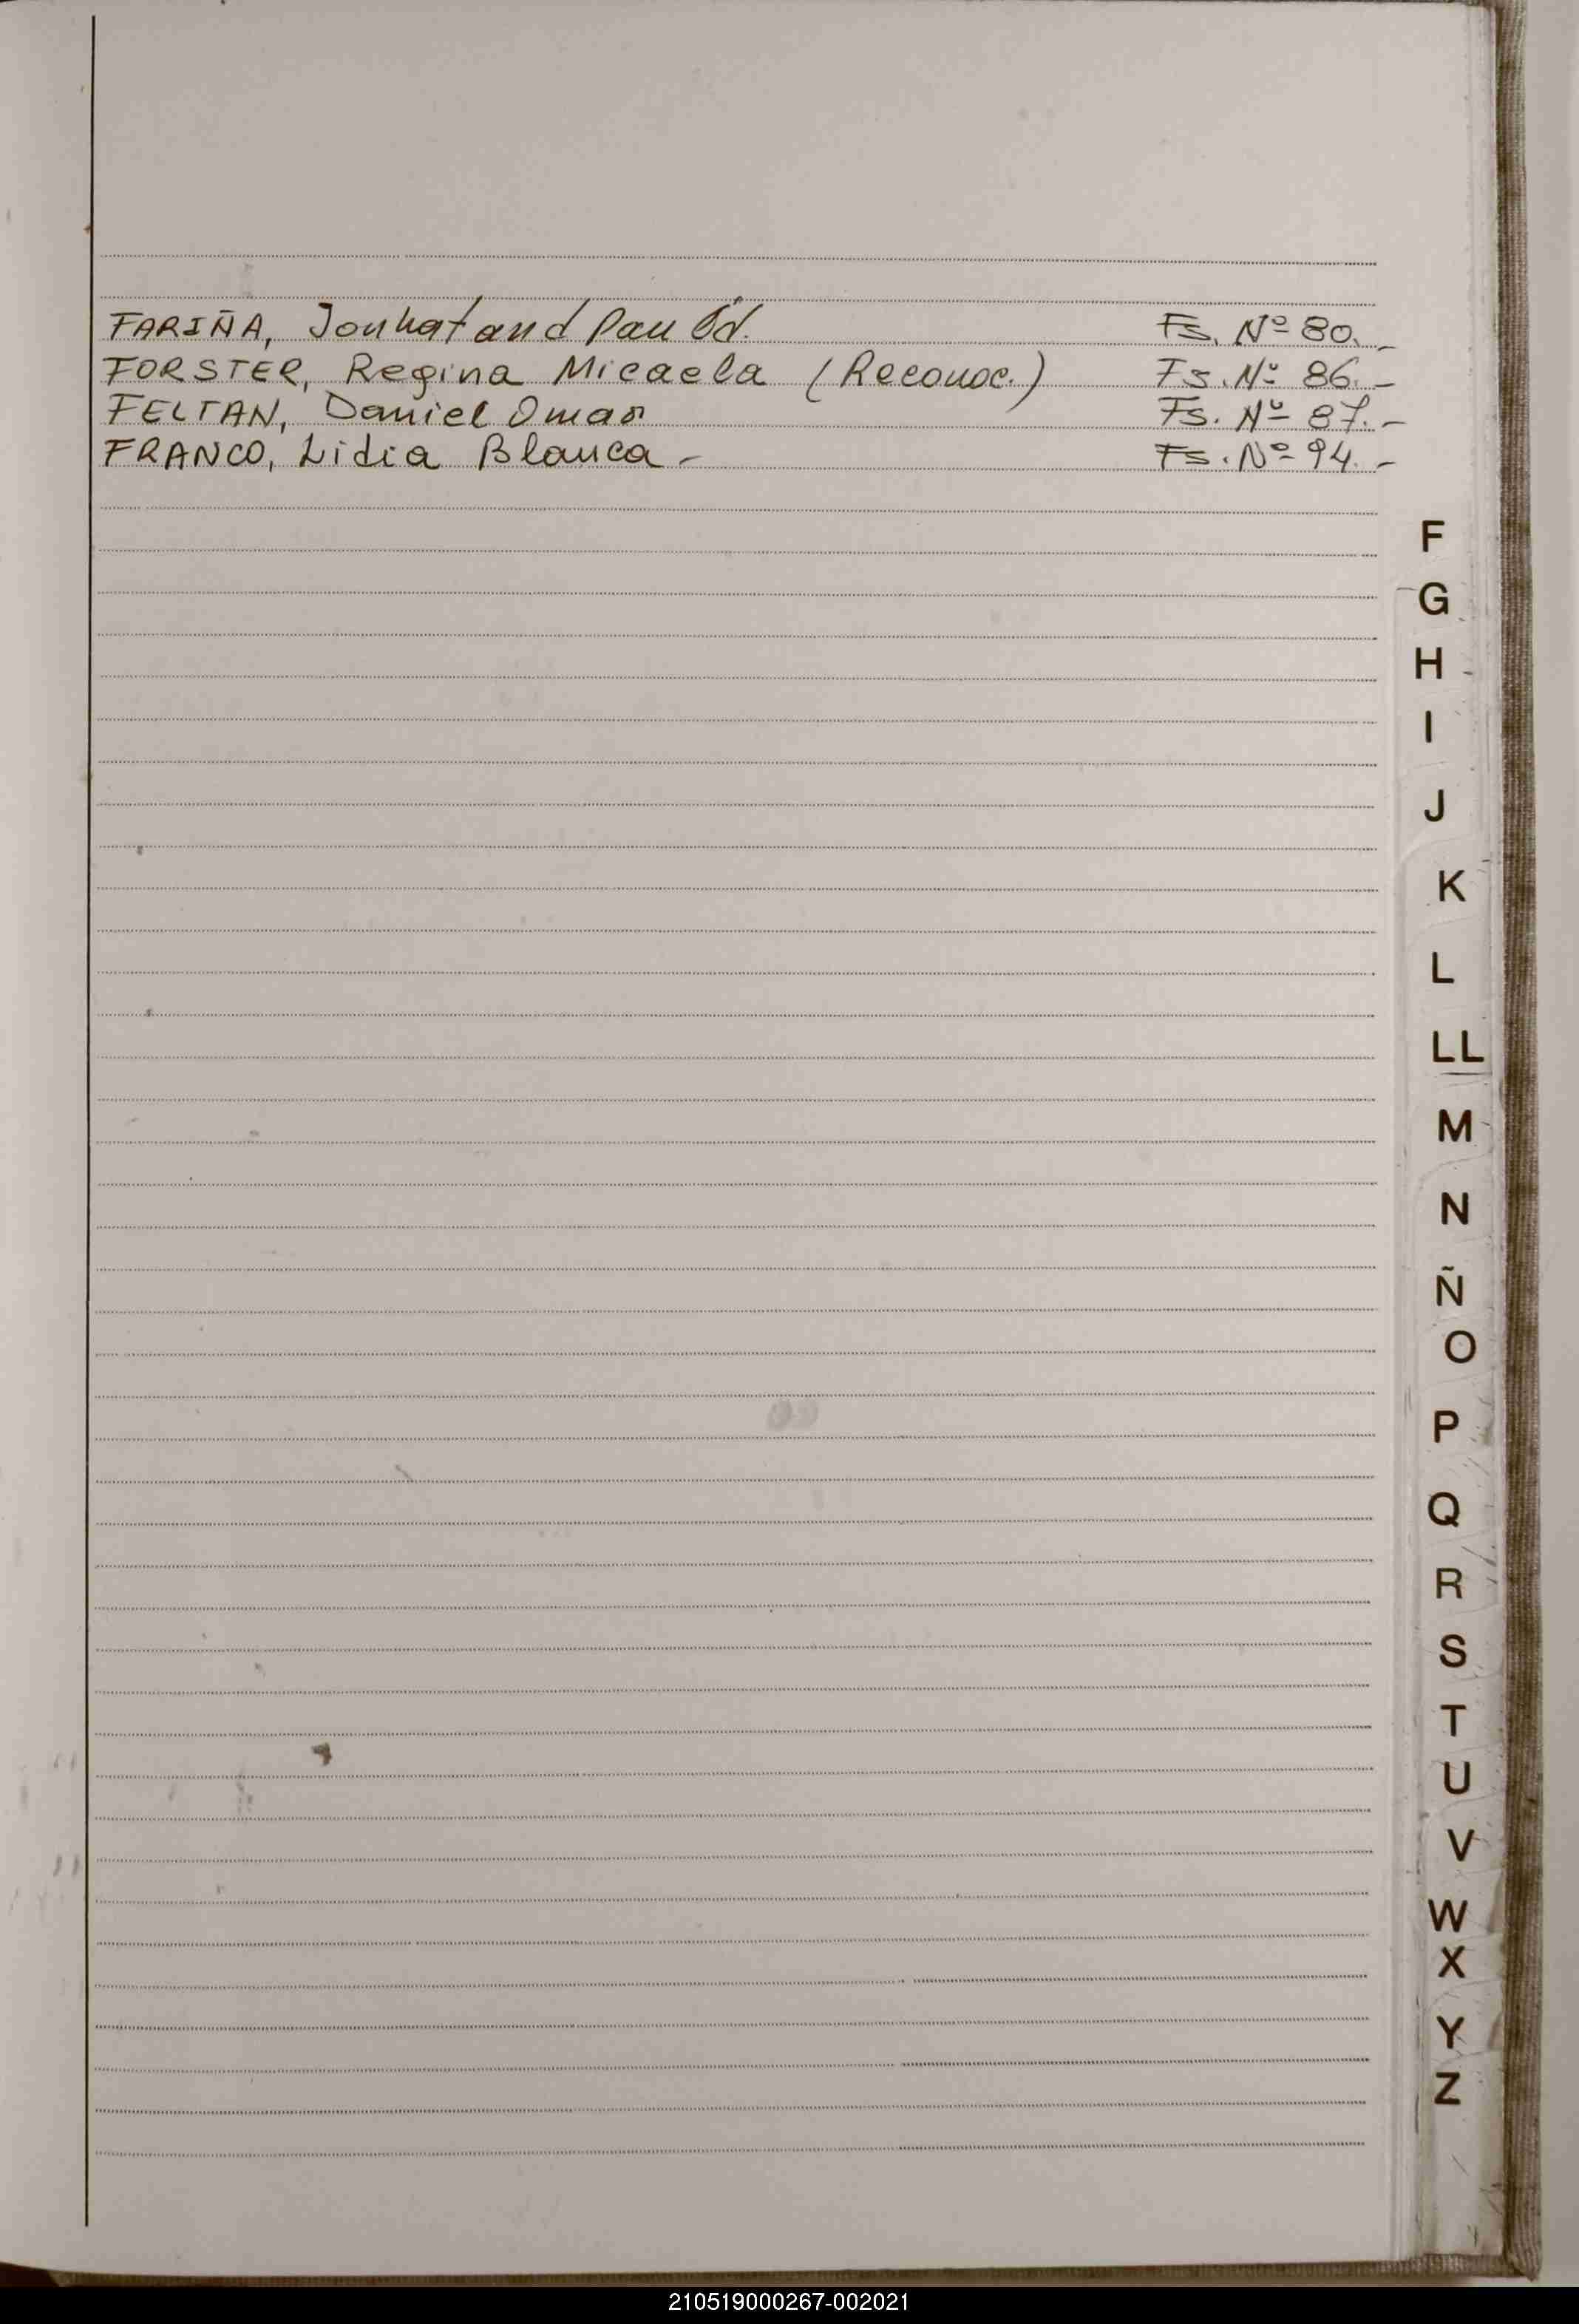 FARIÑA, Jonhatand Paul Fs. Nº 80. -
FORSTER, Regina Micaela (Reconoc.) Fs. Nº 86. -
FELTAN, Daniel Omar Fs. Nº 87. -
FRANCO, Lidia Blanca - Fs. Nº 94. -
F
G
H
I
J
K
L
LL
M
N
Ñ
O
P
Q
R
S
T
U
V
W
X
Y
Z
210519000267-002021